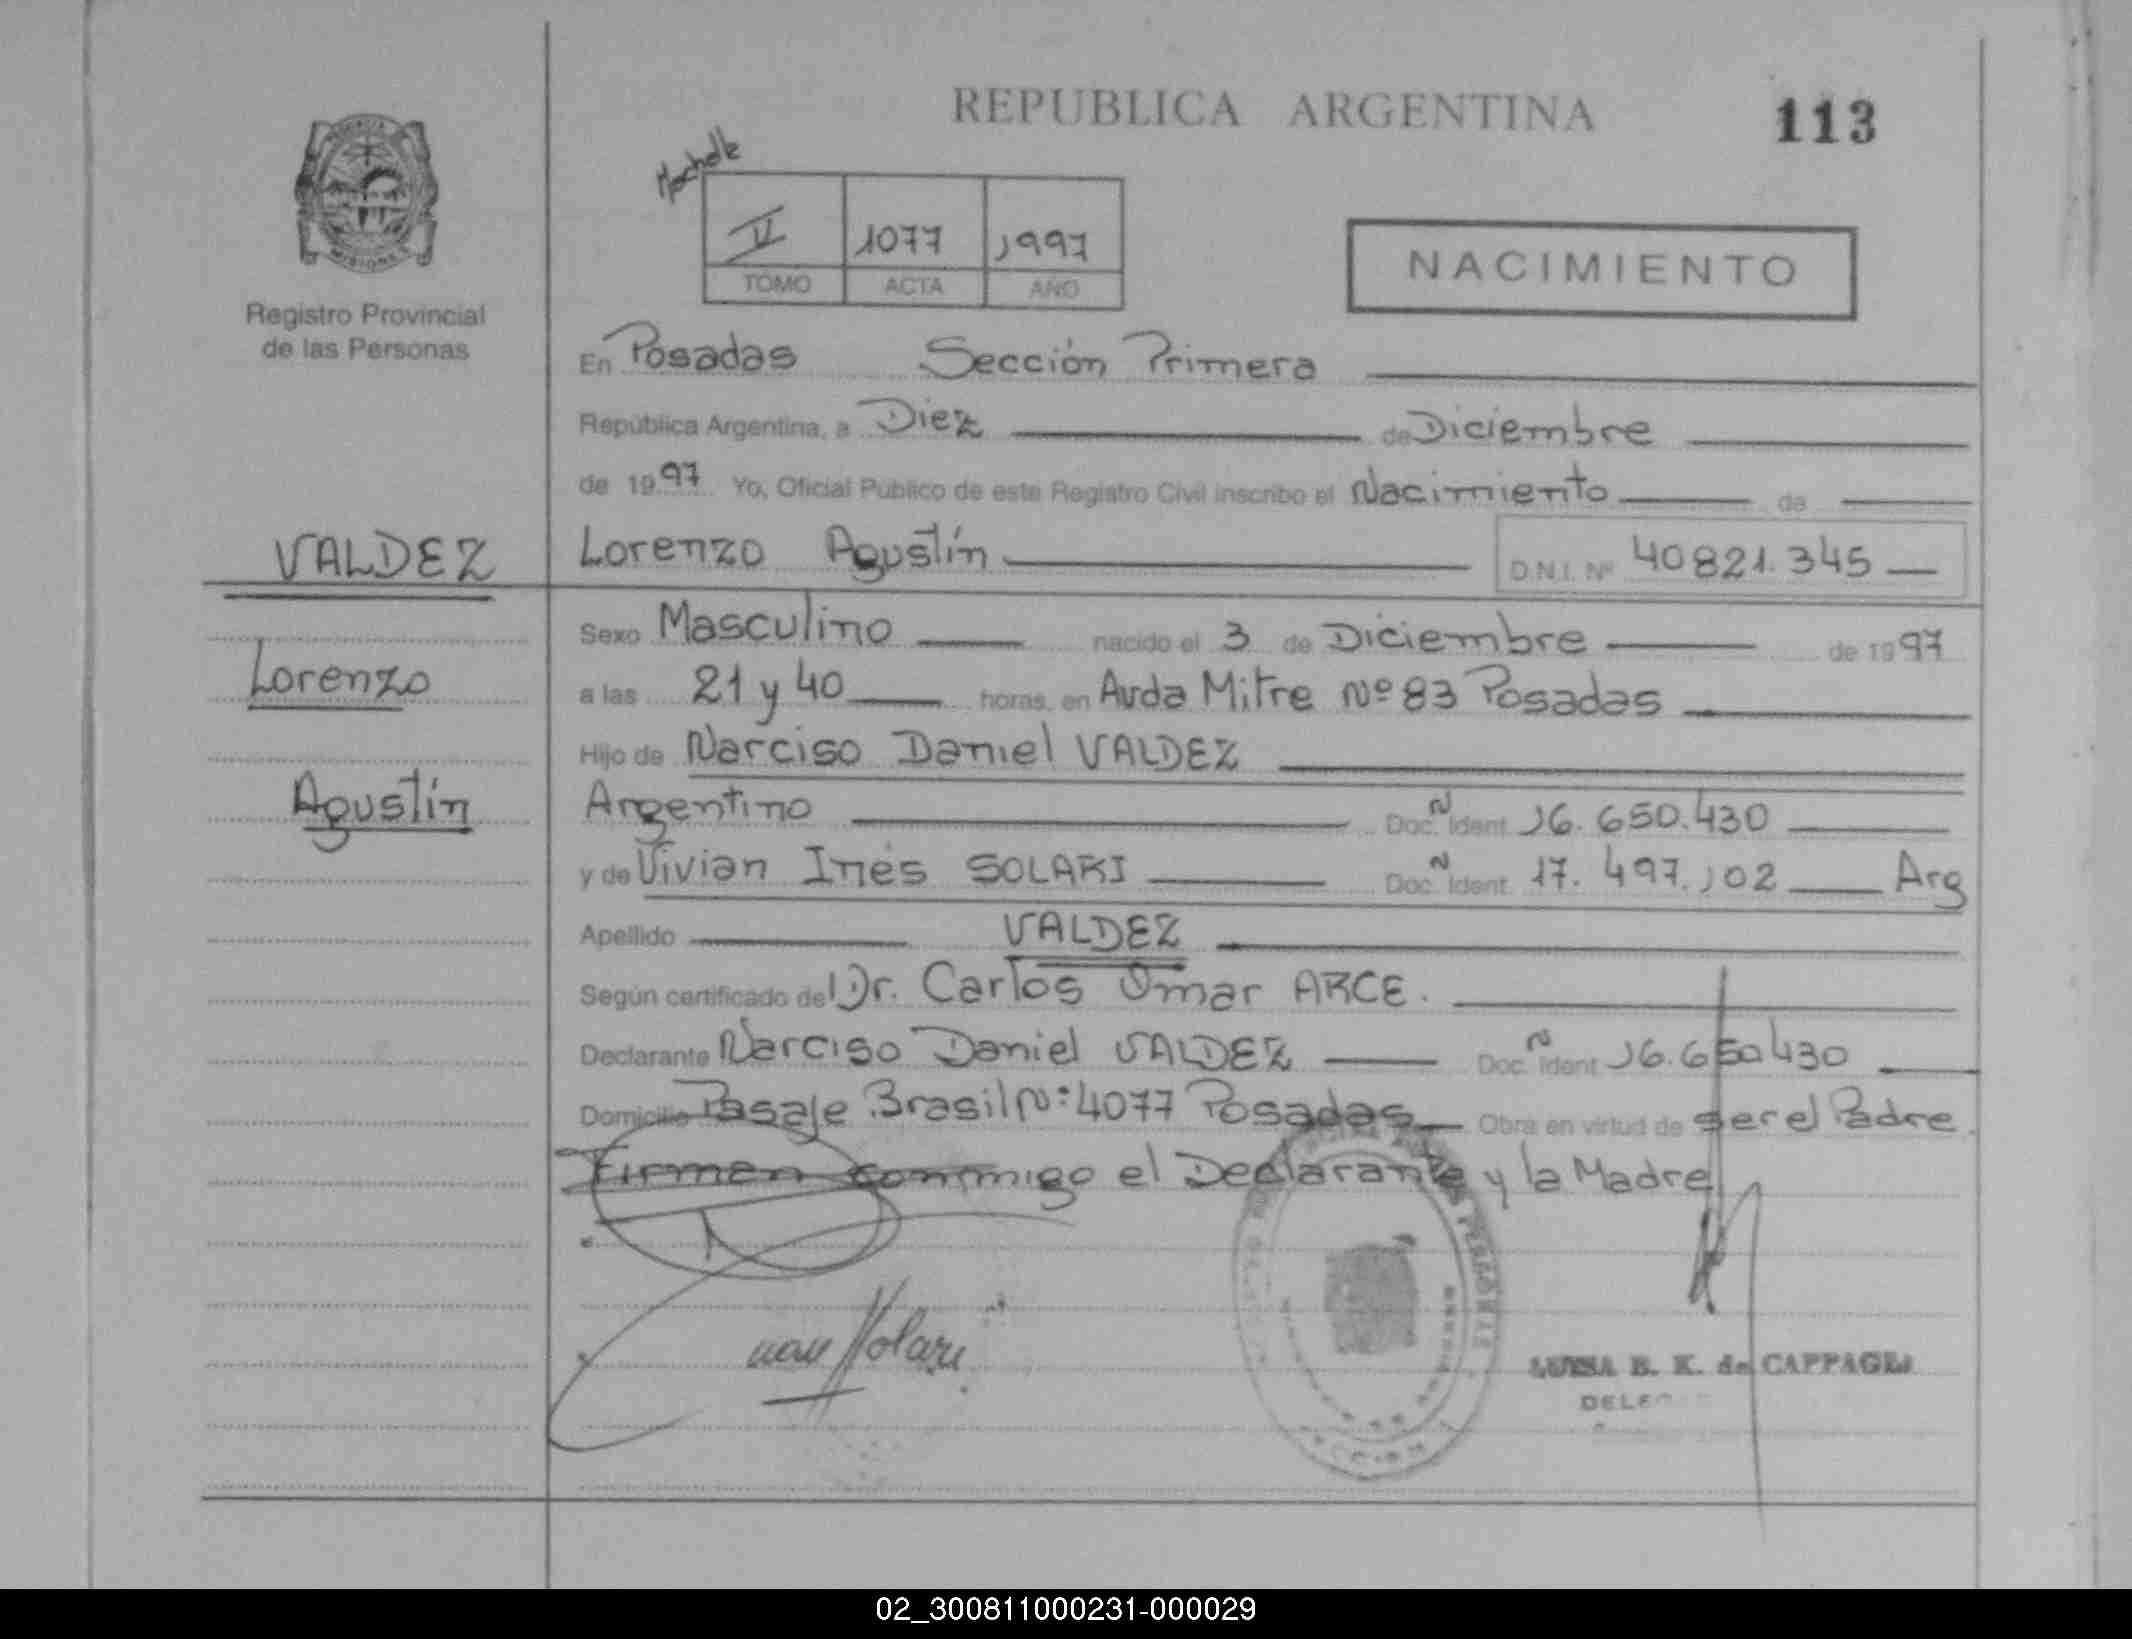 REPUBLICA ARGENTINA
113
II 1077 1997
TOMO ACTA AÑO
NACIMIENTO
MISIONES
Registro Provincial
de las Personas
En Posadas Sección Primera
República Argentina, a Diez de Diciembre
de 1997 Yo, Oficial Público de este Registro Civil inscribo el Nacimiento de
VALDEZ
Lorenzo Agustín D.N.I. Nº 40821.345
Sexo Masculino nacido el 3 de Diciembre de 1997
Lorenzo
a las 21 y 40 horas, en Avda Mitre Nº 83 Posadas
Hijo de Narciso Daniel VALDEZ
Agustín
Argentino Doc. N Ident 16.650.430
y de Vivian Inés SOLARI Doc. N Ident 17.497.102 Arg
Apellido VALDEZ
Según certificado del Dr. Carlos Omar ARCE.
Declarante Narciso Daniel VALDEZ Doc. N Ident 16.650430
Domicilio Pasaje Brasil Nº: 4077 Posadas Obra en virtud de ser el Padre.
Firman conmigo el Declarante y la Madre
Solari
LUISA B. K. de
02_300811000231-000029